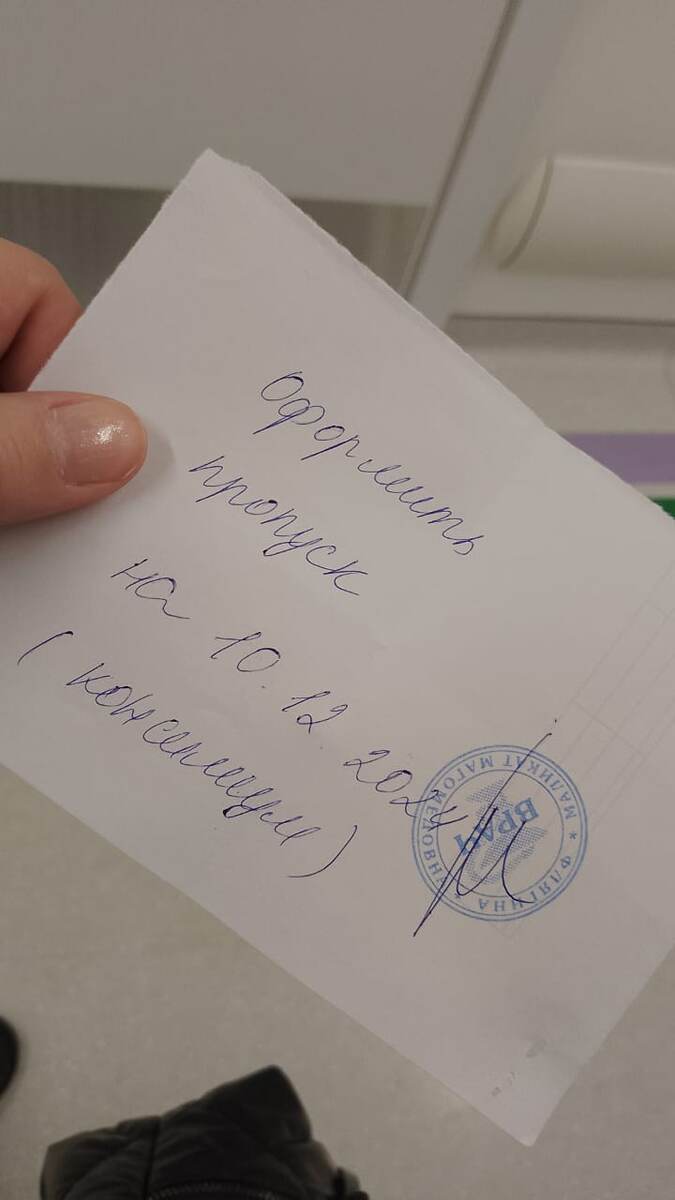 Оформить
пропуск
на 10.12 2024
(консилиум)
* ФЛЯГИНА МАЛИКАТ МАГОМЕДОВНА
ВРАЧ